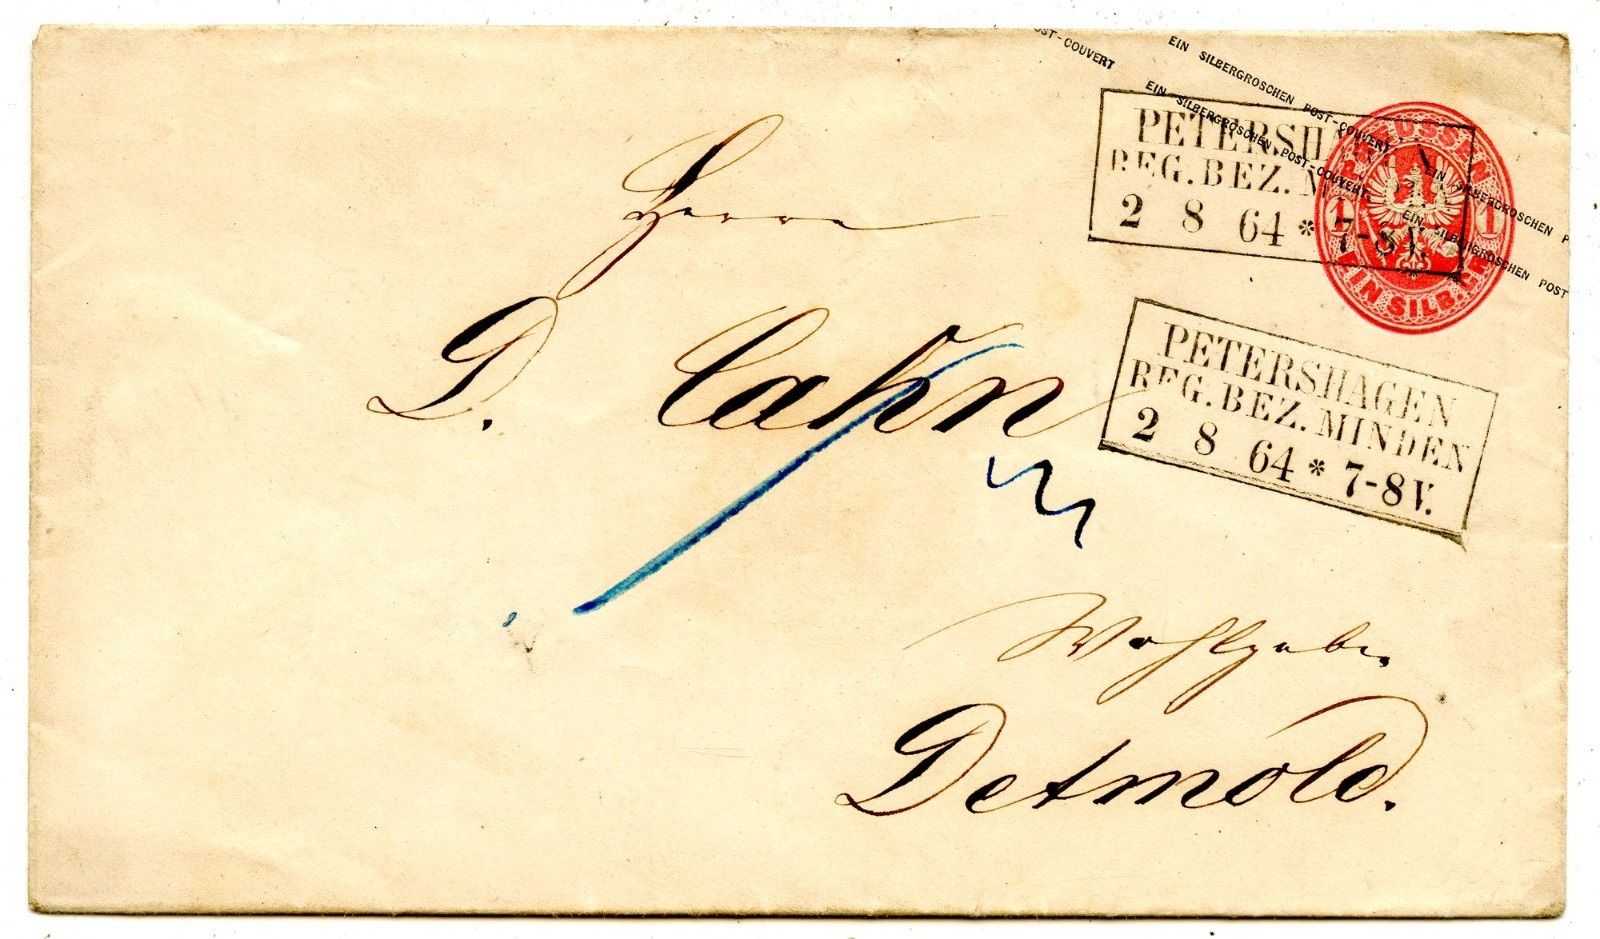 OST-COUVERT
EIN SILBERGROSCHEN POST-COUVERT EIN SILBERGROSCHEN P
EIN SILBERGROSCHEN POST-COUVERT EIN SILBERGROSCHEN POST
PREUSSEN
1 1
EIN SILB. GR.
PETERSHA
REG. BEZ. M
2 8 64 * 7-8 V.
PETERSHAGEN
REG. BEZ. MINDEN
2 8 64 * 7-8 V.
Herrn
D. Cahn
Wohlgeb.
Detmold.